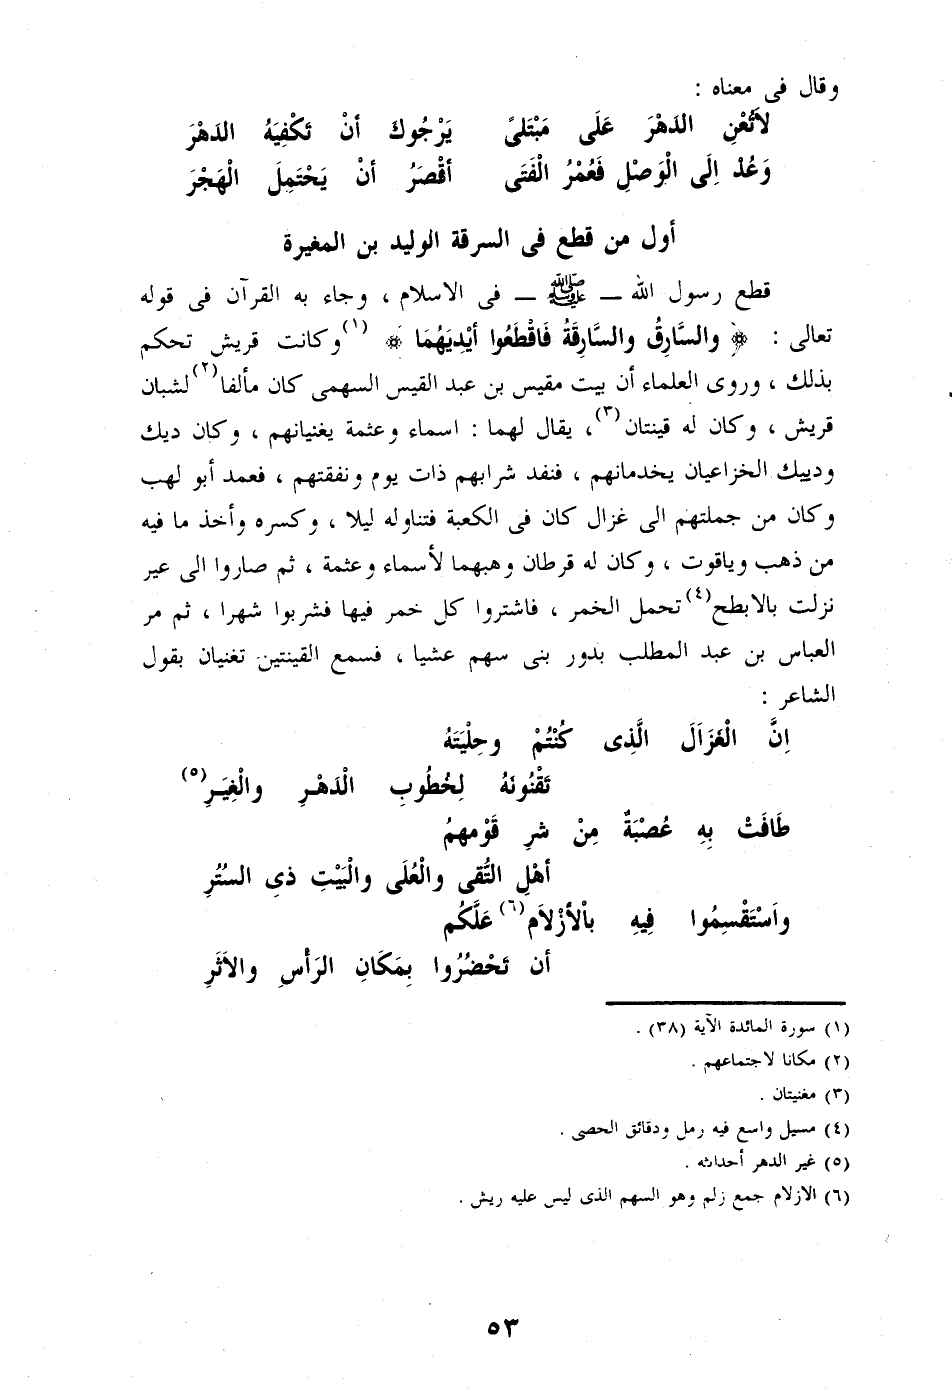 وقال فى معناه :
لاَتُعْنِ الدَهْرَ عَلَى مَبْتَلىً يَرْجُوكَ أنْ تَكْفِيَهُ الدَهْرَ
وَعُدْ اِلَى الْوَصْلِ فَعُمْرُ الْفَتَى أقْصَرُ أنْ يَحْتَمِلَ الْهَجْرَ
أول من قطع فى السرقة الوليد بن المغيرة
قطع رسول الله ــ ﷺ ــ فى الاسلام ، وجاء به القرآن فى قوله
تعالى : ﴿ والسَّارِقُ والسَّارِقَةُ فَاقْطَعُوا أيْدِيَهُمَا ﴾ (١) وكانت قريش تحكم
بذلك ، وروى العلماء أن بيت مقيس بن عبد القيس السهمى كان مألفا(٢) لشبان
قريش ، وكان له قينتان(٣)، يقال لهما : اسماء وعثمة يغنيانهم ، وكان ديك
ودييك الخزاعيان يخدمانهم ، فنفد شرابهم ذات يوم ونفقتهم ، فعمد أبو لهب
وكان من جملتهم الى غزال كان فى الكعبة فتناوله ليلا ، وكسره وأخذ ما فيه
من ذهب وياقوت ، وكان له قرطان وهبهما لأسماء وعثمة ، ثم صاروا الى عير
نزلت بالابطح(٤) تحمل الخمر ، فاشتروا كل خمر فيها فشربوا شهرا ، ثم مر
العباس بن عبد المطلب بدور بنى سهم عشيا ، فسمع القينتين تغنيان بقول
الشاعر :
اِنَّ الْغَزَالَ الَّذِى كُنْتُمْ وحِلْيَتَهُ
تَقْنُونَهُ لِخُطُوبِ الْدَهْرِ والْغِيَرِ(٥)
طَافَتْ بِهِ عُصْبَةٌ مِنْ شرِ قَوْمهمُ
أهْلِ التُّقى والْعُلَى والْبَيْتِ ذىِ السُتُرِ
واَسْتَقْسِمُوا فِيهِ بالْأزْلاَم(٦) عَلَّكُم
أن تَحْضُرُوا بِمَكَانِ الرَأسِ والاَثَرِ
(١) سورة المائدة الآية (٣٨) .
(٢) مكانا لاجتماعهم .
(٣) مغنيتان .
(٤) مسيل واسع فيه رمل ودقائق الحصى .
(٥) غير الدهر أحداثه .
(٦) الازلام جمع زلم وهو السهم الذى ليس عليه ريش .
٥٣